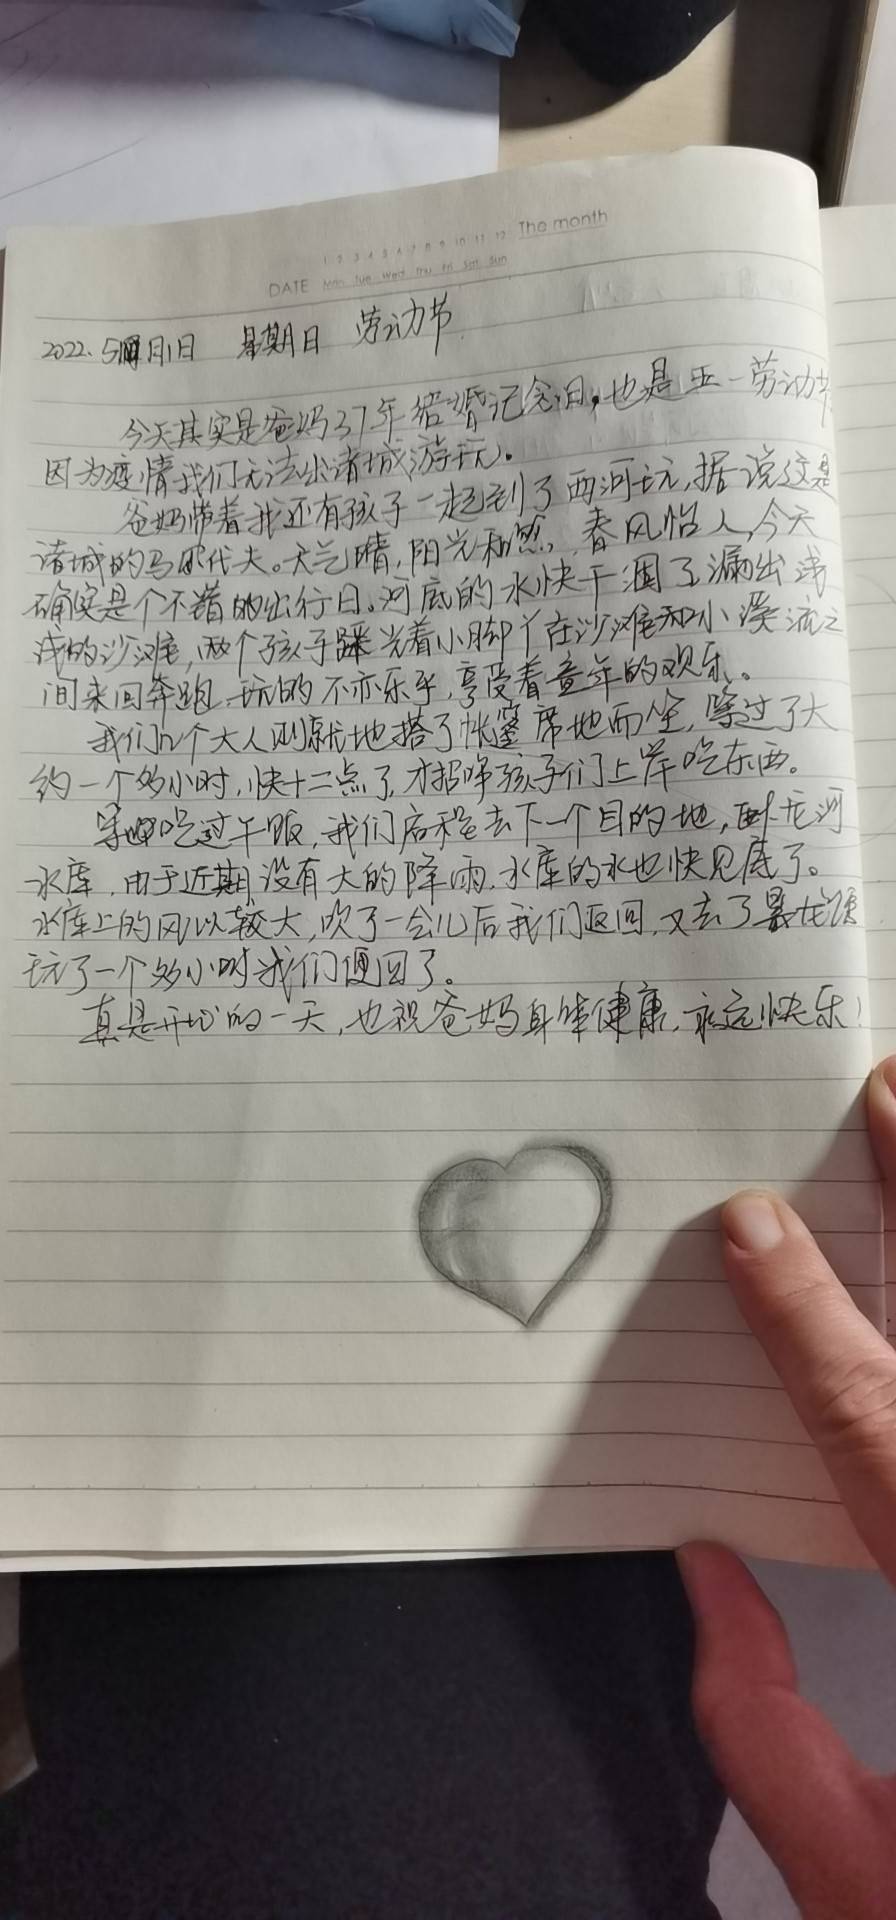 The month
1 2 3 4 5 6 7 8 9 10 11 12
DATE Mon Tue Wed Thu Fri Sat Sun
2022.5月1日 星期日 劳动节
今天其实是爸妈37年结婚记念日,也是五一劳动节
因为疫情我们无法出诸城游玩。
爸妈带着我还有孩子一起到了两河玩,据说这是
诸城的马尔代夫。天气晴,阳光和煦,春风怡人,今天
确实是个不错的出行日。河底的水快干涸了漏出浅
浅的沙滩,两个孩子踩光着小脚丫在沙滩和小溪流之
间来回奔跑,玩的不亦乐乎,享受着童年的欢乐。
我们几个大人则就地搭了帐篷席地而坐,等过了大
约一个多小时,快十二点了,才招呼孩子们上岸吃东西。
等吃过午饭,我们启程去下一个目的地,卧龙河
水库,由于近期没有大的降雨,水库的水也快见底了。
水库上的风比较大,吹了一会儿后我们返回,又去了暴龙馆
玩了一个多小时我们便回了。
真是开心的一天,也祝爸妈身体健康,永远快乐!